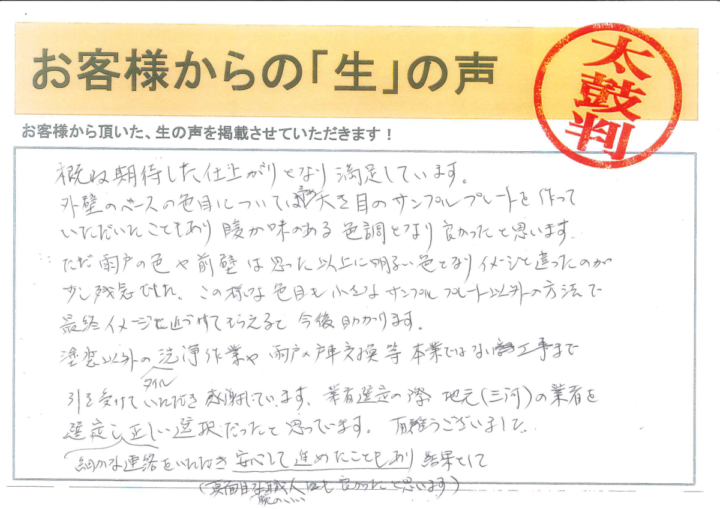 お客様からの「生」の声
太鼓判
お客様から頂いた、生の声を掲載させていただきます！
概ね期待した仕上がりとなり満足しています。
外壁のベースの色目については大き目のサンプルプレートを作って
いただいたこともあり暖か味のある色調となり良かったと思います。
ただ雨戸の色や前壁は思った以上に明るい色となりイメージと違ったのが
少し残念でした。この様な色目も小さなサンプルプレート以外の方法で
最終イメージに近づけてもらえると今後助かります。
塗装以外の洗浄作業や雨戸の戸車交換等本業ではない工事まで
タイル
引き受けていただき感謝しています。業者選定の際地元(三河)の業者を
選定し正しい選択だったと思っています。有難うございました。
細かな連絡をいただき安心して進めたこともあり結果として
(真面目な職人さんも良かったと思います)